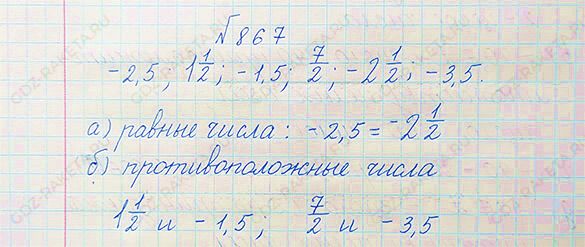 № 867
-2,5; 1 1/2; -1,5; 7/2; -2 1/2; -3,5.
а) равные числа: -2,5 = -2 1/2
б) противоположные числа
1 1/2 и -1,5; 7/2 и -3,5